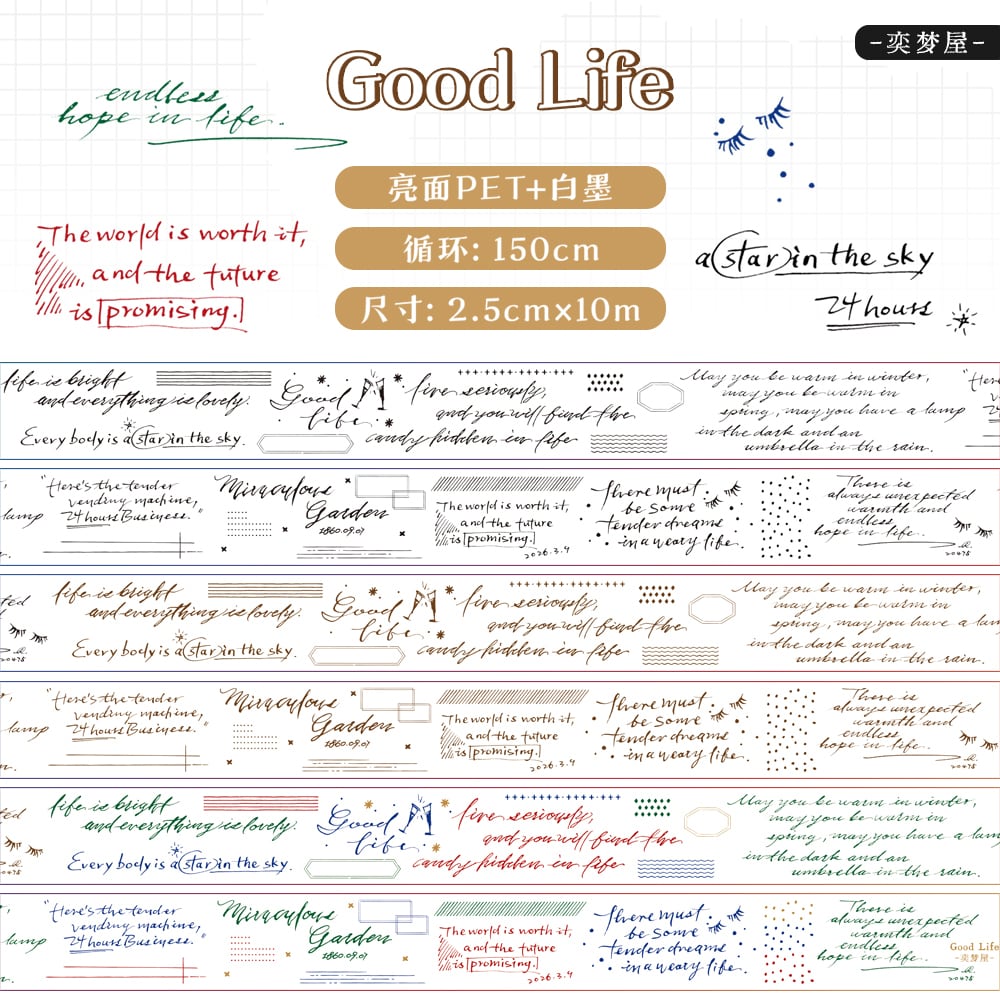 -奕梦屋-
Good Life
endless
hope in life.
亮面PET+白墨
循环: 150cm
尺寸: 2.5cm×10m
The world is worth it,
and the future
is promising.
a star in the sky
24 hours
life is bright
and everything is lovely.
Every body is a star in the sky.
Good
life.
live seriously,
and you will find the
candy hidden in life
May you be warm in winter,
may you be warm in
spring, may you have a lamp
in the dark and an
umbrella in the rain.
"Her
lamp
"Here's the tender
vending machine,
24 hours Business."
Miraculous
Garden
1860.09.01
The world is worth it,
and the future
is promising.
2026.3.4
There must
be some
tender dreams
in a weary life.
There is
always unexpected
warmth and
endless
hope in life.
20475
ted
20475
life is bright
and everything is lovely.
Every body is a star in the sky.
Good
life.
live seriously,
and you will find the
candy hidden in life
May you be warm in winter,
may you be warm in
spring, may you have a lam
in the dark and an
umbrella in the rain.
lamp
n.
"Here's the tender
vending machine,
24 hours Business."
Miraculous
Garden
1860.09.01
The world is worth it,
and the future
is promising.
2026.3.4
There must
be some
tender dreams
in a weary life.
There is
always unexpected
warmth and
endless
hope in life.
20475
ed
20475
life is bright
and everything is lovely.
Every body is a star in the sky.
Good
life.
live seriously,
and you will find the
candy hidden in life
May you be warm in winter,
may you be warm in
spring, may you have a lam
in the dark and an
umbrella in the rain.
lamp
n.
"Here's the tender
vending machine,
24 hours Business."
Miraculous
Garden
1860.09.01
The world is worth it,
and the future
is promising.
2026.3.4
There must
be some
tender dreams
in a weary life.
There is
always unexpected
warmth and
endless
hope in life.
20475
Good Life
-奕梦屋-